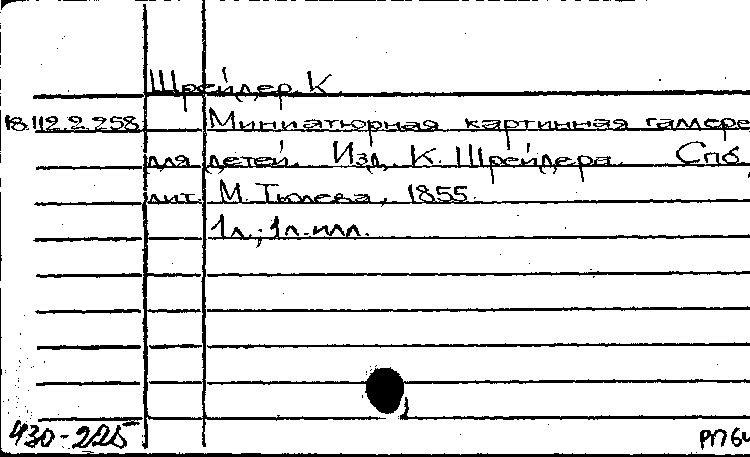 Шрейдер К.
18.112.2.258 Миниатюрная картинная галере
для детей. Изд. К. Шрейдера. Спб,
лит. М. Тюлева, 1855.
1 л.; 1 л. илл.
430-225